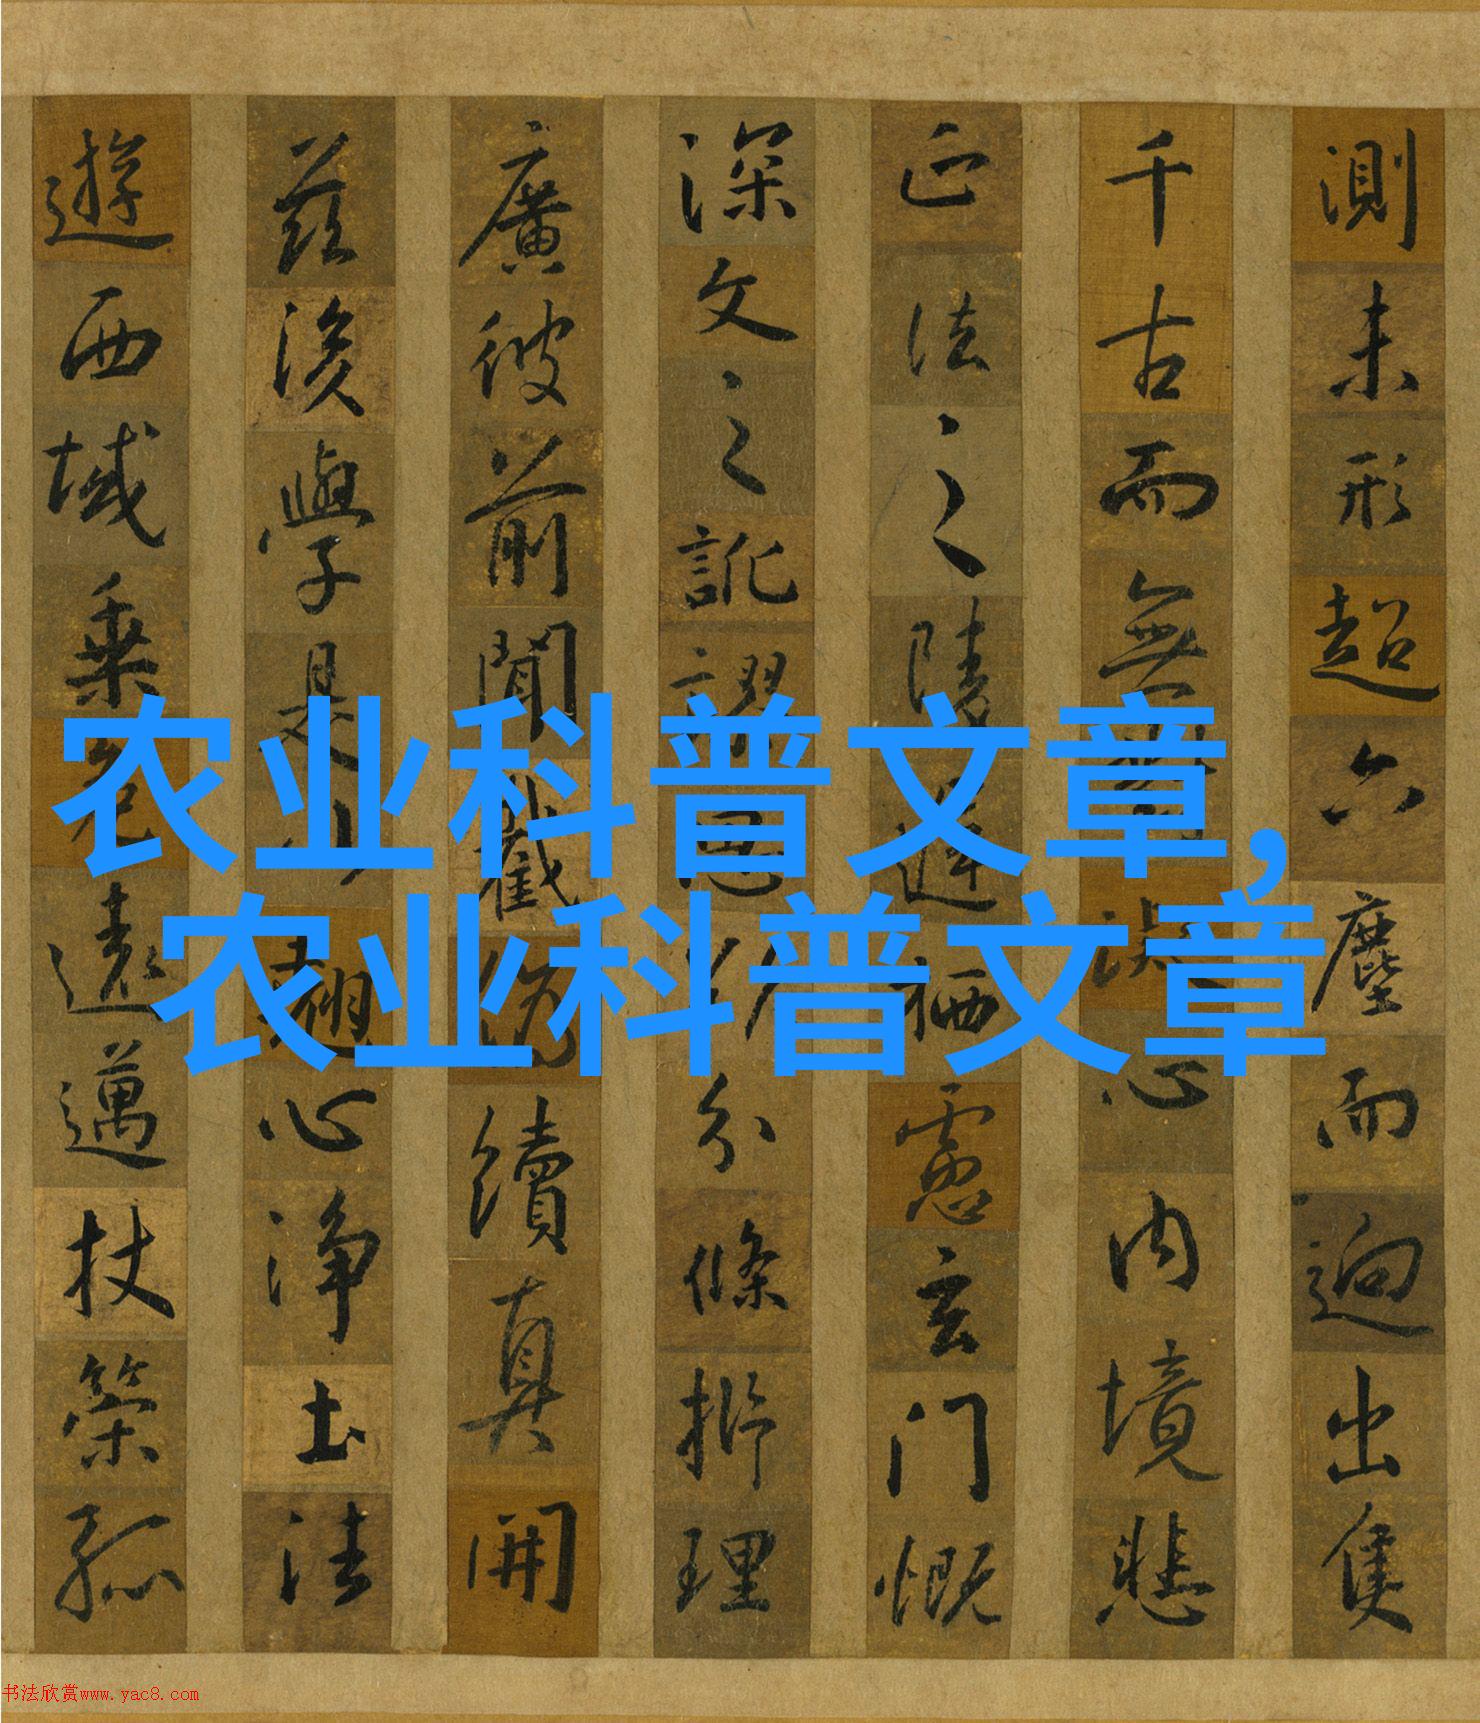 農业科普文章,
农业科普文章
測未形超六塵而迥出隻
千古而無心內境悲
正法之陵遲栖慮玄門慨
深文之訛謬思分條析理
廣彼前聞截偽續真開
茲後學是翹心淨土法
遊西域乘危遠邁杖策孤
书法欣赏www.yac8.com